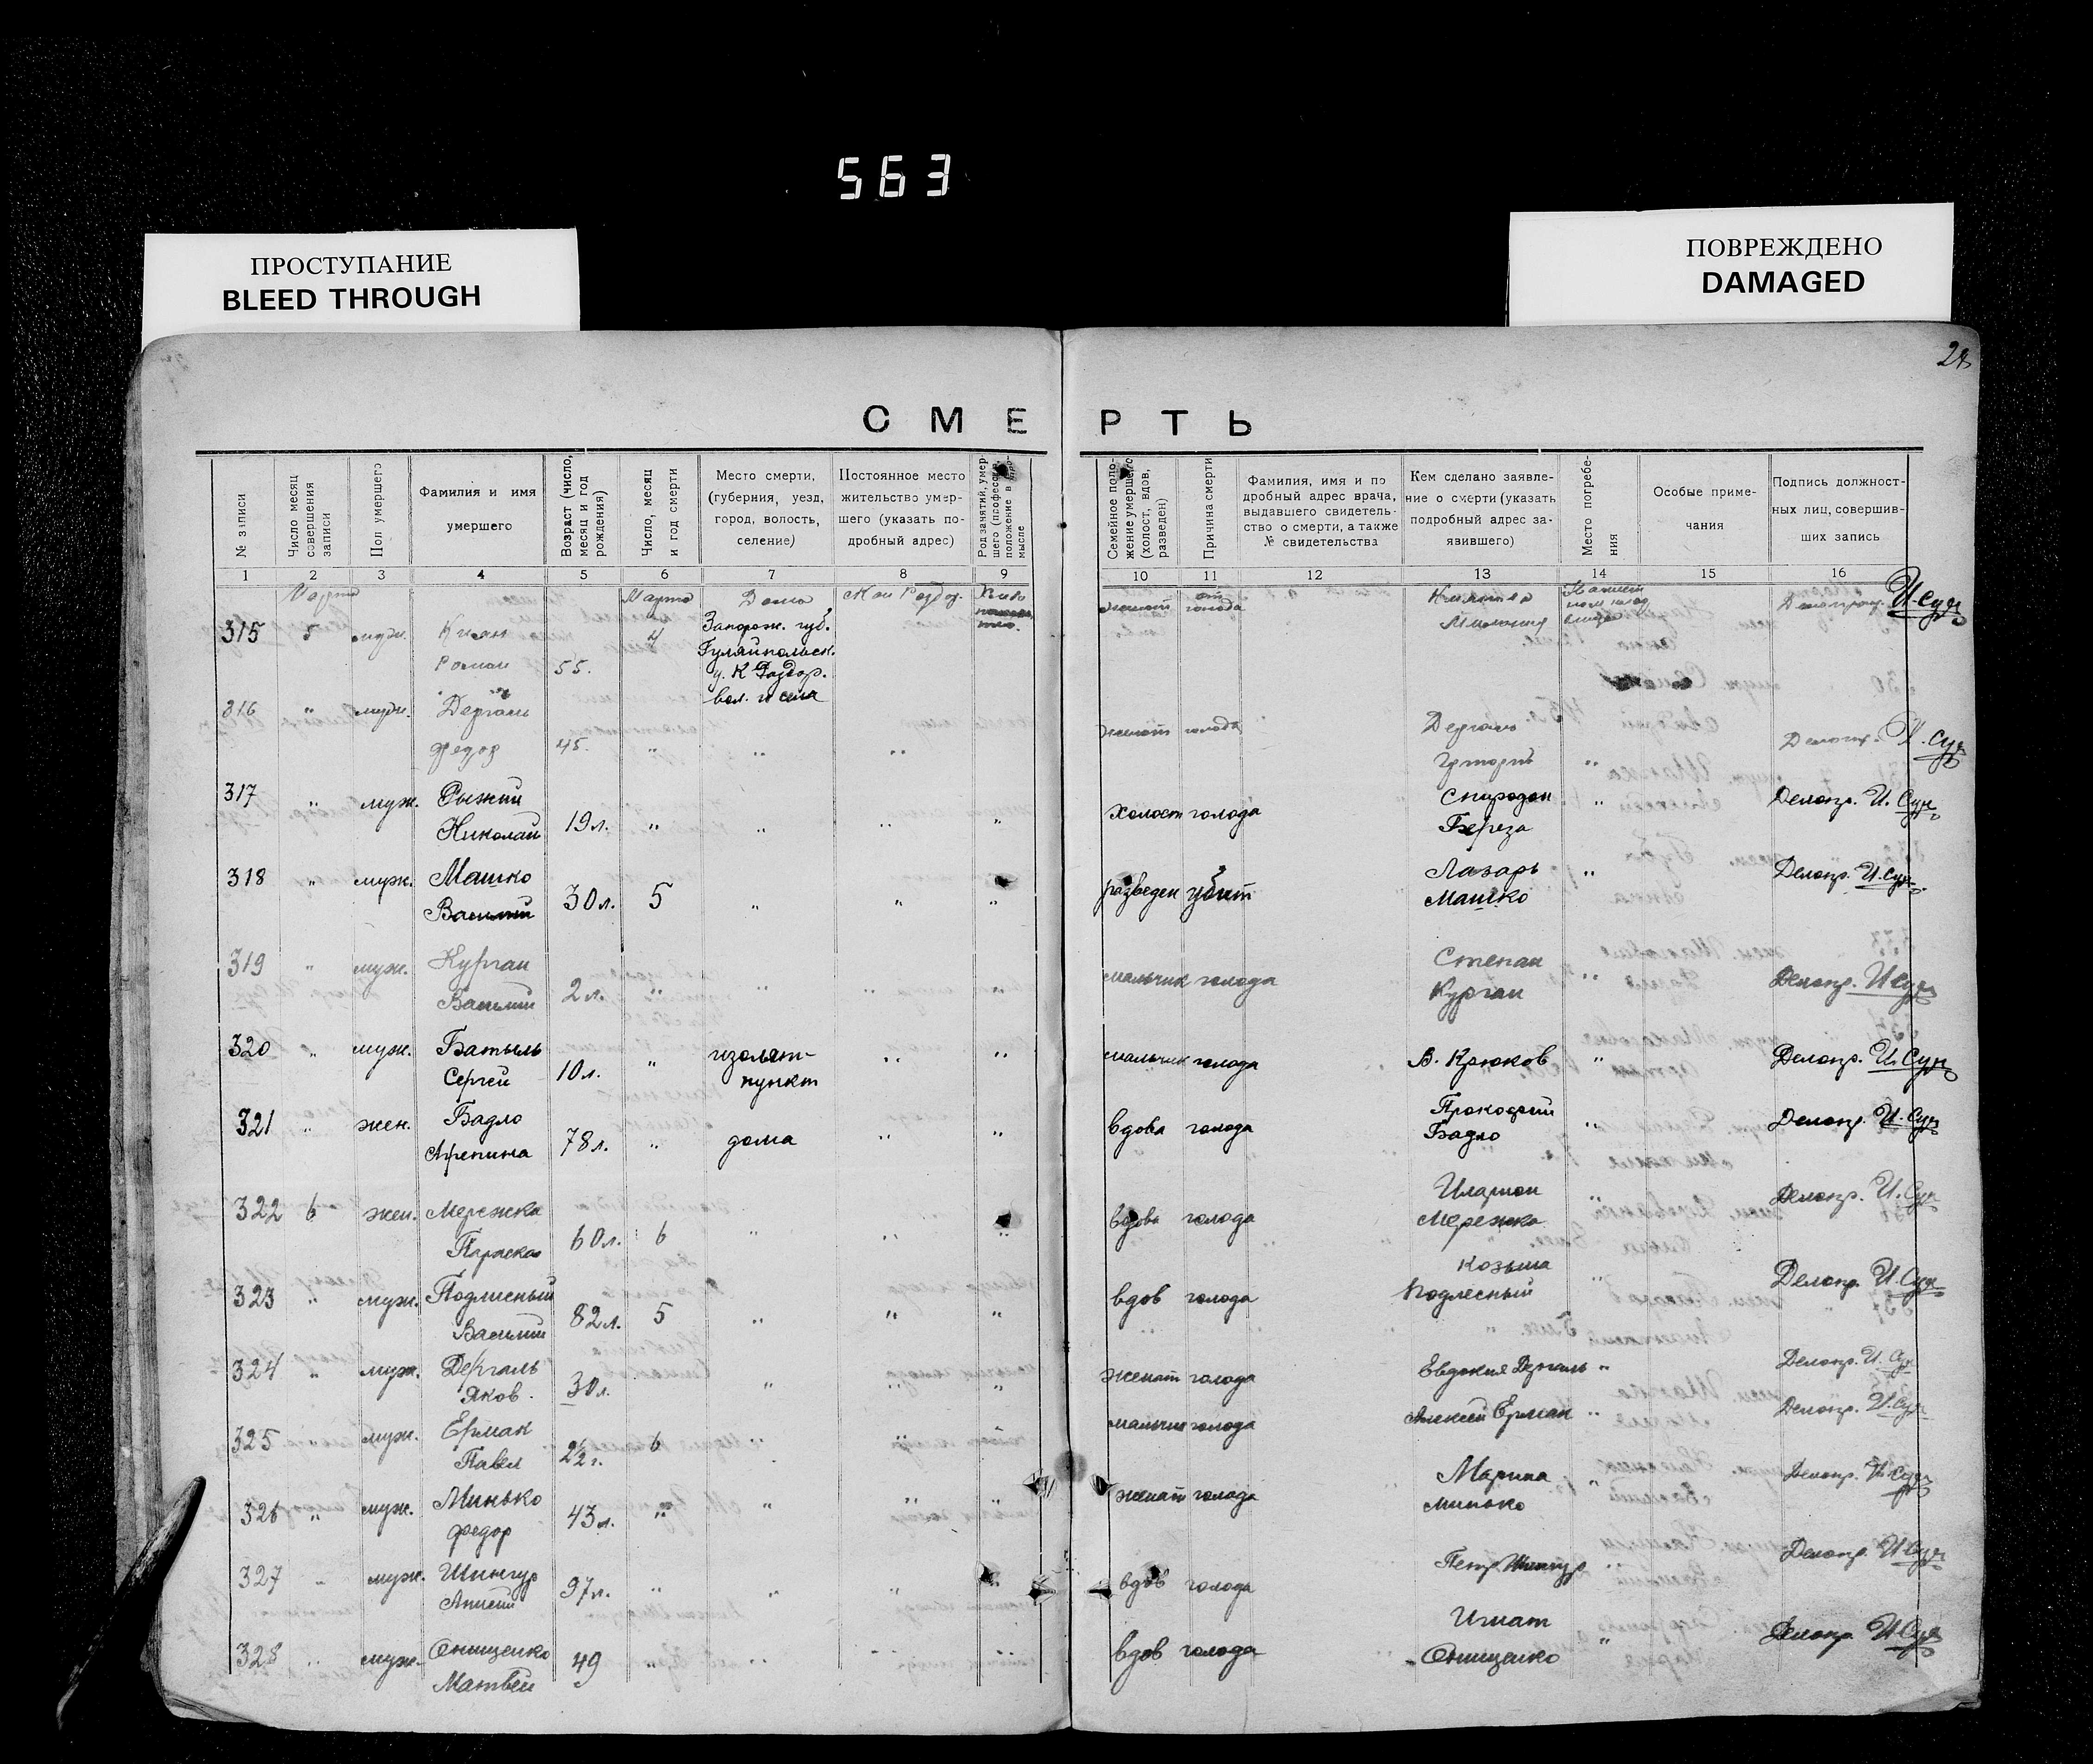 563
ПРОСТУПАНИЕ
BLEED THROUGH
ПОВРЕЖДЕНО
DAMAGED
28
СМЕРТЬ
№ записи
Число месяц совершения записи
Пол умершего
Фамилия и имя умершего
Возраст (число, месяц и год рождения)
Число, месяц и год смерти
Место смерти, (губерния, уезд, город, волость, селение)
Постоянное место жительство умершего (указать подробный адрес)
Род занятий, умершего (профессия, положение в промысле
Семейное положение умершего (холост, вдов, разведен)
Причина смерти
Фамилия, имя и подробный адрес врача, выдавшего свидетельство о смерти, а также № свидетельства
Кем сделано заявление о смерти (указать подробный адрес заявившего)
Место погребения
Особые примечания
Подпись должностных лиц, совершивших запись
1 2 3 4 5 6 7 8 9 10 11 12 13 14 15 16
Марта Марта Дома
315 5 муж. Роман 55. 4 Запорож. губ. Гуляйпольск. у. К Раздор. вол. и села женат от голода И. Сук
316 " муж. Дергаль Федор 45. " " " женат голода Дергаль Григорий " Делопр. И. Сук
317 " муж. Рыжий Николай 19 л. " " " " холост голода Спиридон Береза " Делопр. И. Сук
318 " муж. Машко Василий 30 л. 5 " " " разведен убит Лазарь Машко " Делопр. И. Сук
319 " муж. Курган Василий 2 л. " " " " мальчик голода Степан Курган " Делопр. И. Сук
320 " муж. Батыль Сергей 10 л. " изолят-пункт " " мальчик голода В. Крюков " Делопр. И. Сук
321 " жен. Бадло Агрепина 78 л. " дома " " вдова голода Прокофий Бадло " Делопр. И. Сук
322 6 жен. Мережка 60 л. 6 " " " вдова голода Иларион Мережко " Делопр. И. Сук
323 " муж. Подлисный Василий 82 л. 5 " " " вдов голода Козьма Подлесный " Делопр. И. Сук
324 " муж. Дергаль Яков. 30 л. " " " женат голода Евдокия Дергаль " Делопр. И. Сук
325 муж. Ермак Павел 2½ г. 6 " " мальчик голода Алексей Ермак " Делопр. И. Сук
326 " муж. Минько Федор 43 л. " " " " женат голода Марина Минько " Делопр. И. Сук
327 " муж. Шингур 97 л. " " " " вдов голода Петр Шингур " Делопр. И. Сук
328 " муж. Онищенко Матвей 49 " " " " вдов голода Игнат Онищенко " Делопр. И. Сук